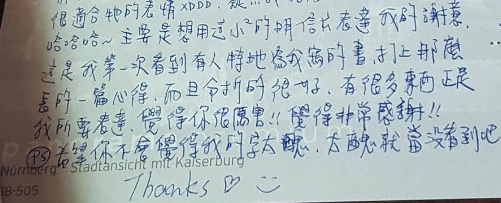 很適合他的表情XDDD.
哈哈哈哈~主要是想用這小小的明信片表達我的謝意.
這是我第一次看到有人特地為我寫的書,打上那麼
長的一篇心得,而且分析的很好,有很多東西正是
我所要表達,覺得你很厲害!!覺得非常感謝!!
PS 希望你不會覺得我的字太醜,太醜就當沒看到吧
Nürnberg - Stadtansicht mit Kaiserburg
18-505
Thanks ♡ :)